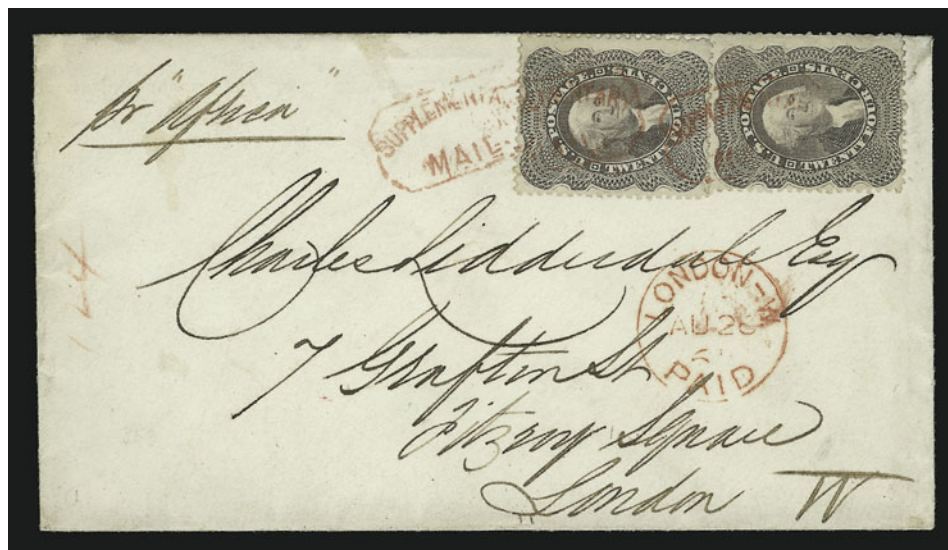 pr "Africa"
SUPPLEMENTARY
MAIL
U.S. POSTAGE. TWENTY FOUR CENTS.
U.S. POSTAGE. TWENTY FOUR CENTS.
Charles Lidderdale Esq
LONDON-W
AU 28
PAID
7 Grafton St
Fitzroy Square
London W